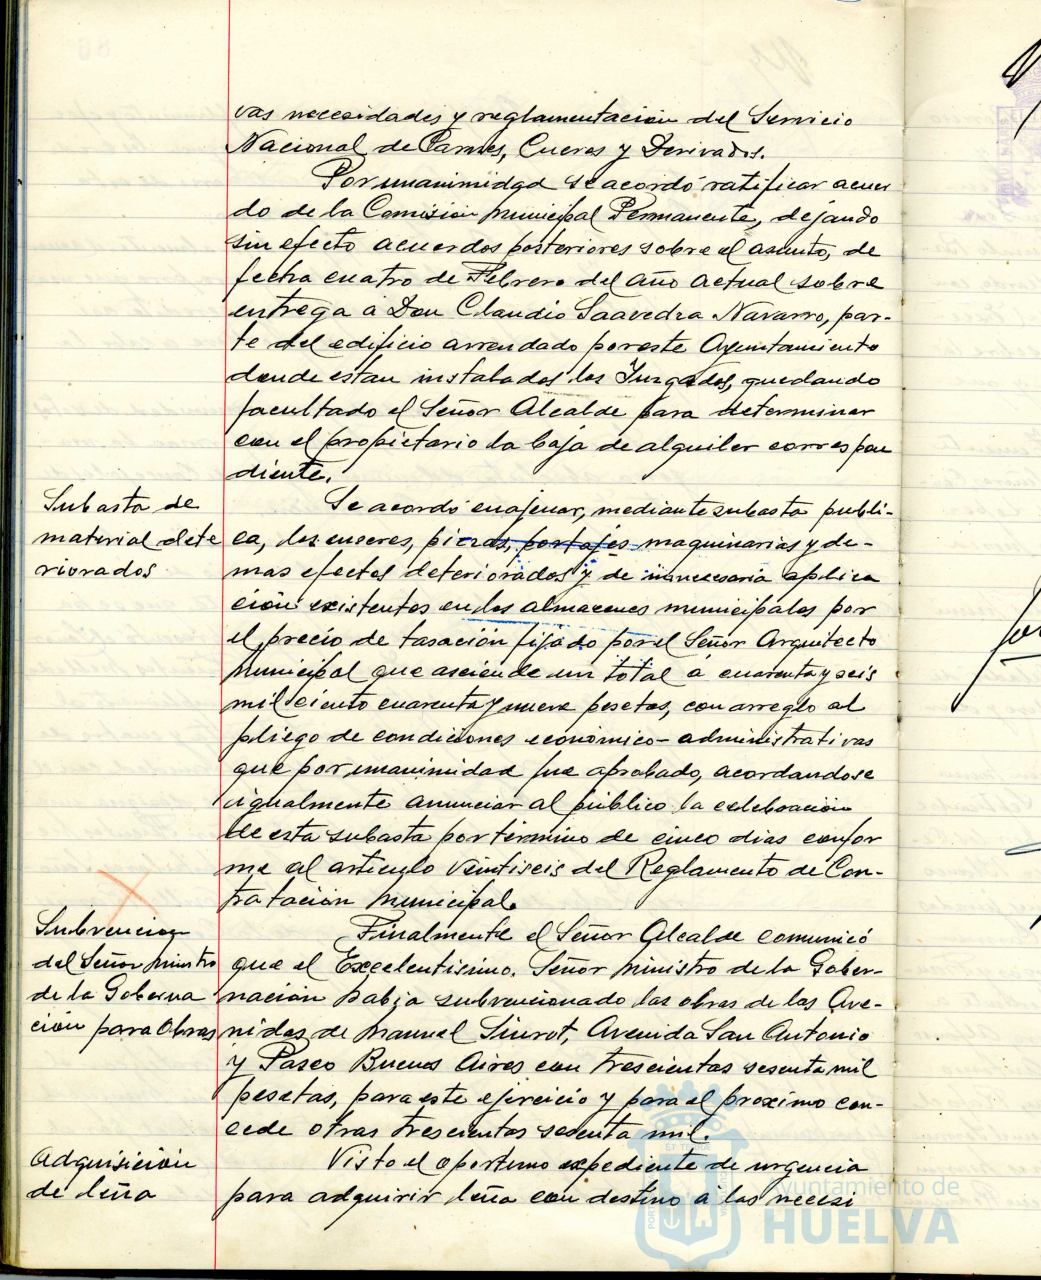 vas necesidades y reglamentación del Servicio
Nacional de Carnes, Cueros y Derivados.
Por unanimidad se acordó ratificar acuer
do de la Comisión Municipal Permanente, dejando
sin efecto acuerdos posteriores sobre el asunto, de
fecha cuatro de Febrero del año actual sobre
entrega a Don Claudio Saavedra Navarro, par-
te del edificio arrendado por este Ayuntamiento
donde estan instalados los Juzgados, quedando
facultado el Señor Alcalde para determinar
con el propietario la baja de alquiler correspon
diente.
Subasta de
material dete
riorados
Se acordó enajenar, mediante subasta públi-
ca, los enseres, piezas, maquinarias y de-
mas efectos deteriorados y de innecesaria aplica
ción existentes en los almacenes municipales por
el precio de tasación fijado por el Señor Arquitecto
Municipal que asciende un total a cuarenta y seis
mil ciento cuarenta y nueve pesetas, con arreglo al
pliego de condiciones económico-administrativas
que por unanimidad fue aprobado, acordandose
igualmente anunciar al público la celebración
de esta subasta por término de cinco dias confor
me al articulo veintiseis del Reglamento de Con-
tratación Municipal.
Subvencion
del Señor Ministro
de la Goberna
ción para Obras
Finalmente el Señor Alcalde comunicó
que el Excelentisimo. Señor Ministro de la Gober-
nación habia subvencionado las obras de las Ave-
nidas de Manuel Siurot, Avenida San Antonio
y Paseo Buenos Aires con trescientas sesenta mil
pesetas, para este ejercicio y para el proximo con-
cede otras trescientas sesenta mil.
Adquisición
de leña
Visto el oportuno expediente de urgencia
para adquirir leña con destino a las necesi
Ayuntamiento de
HUELVA